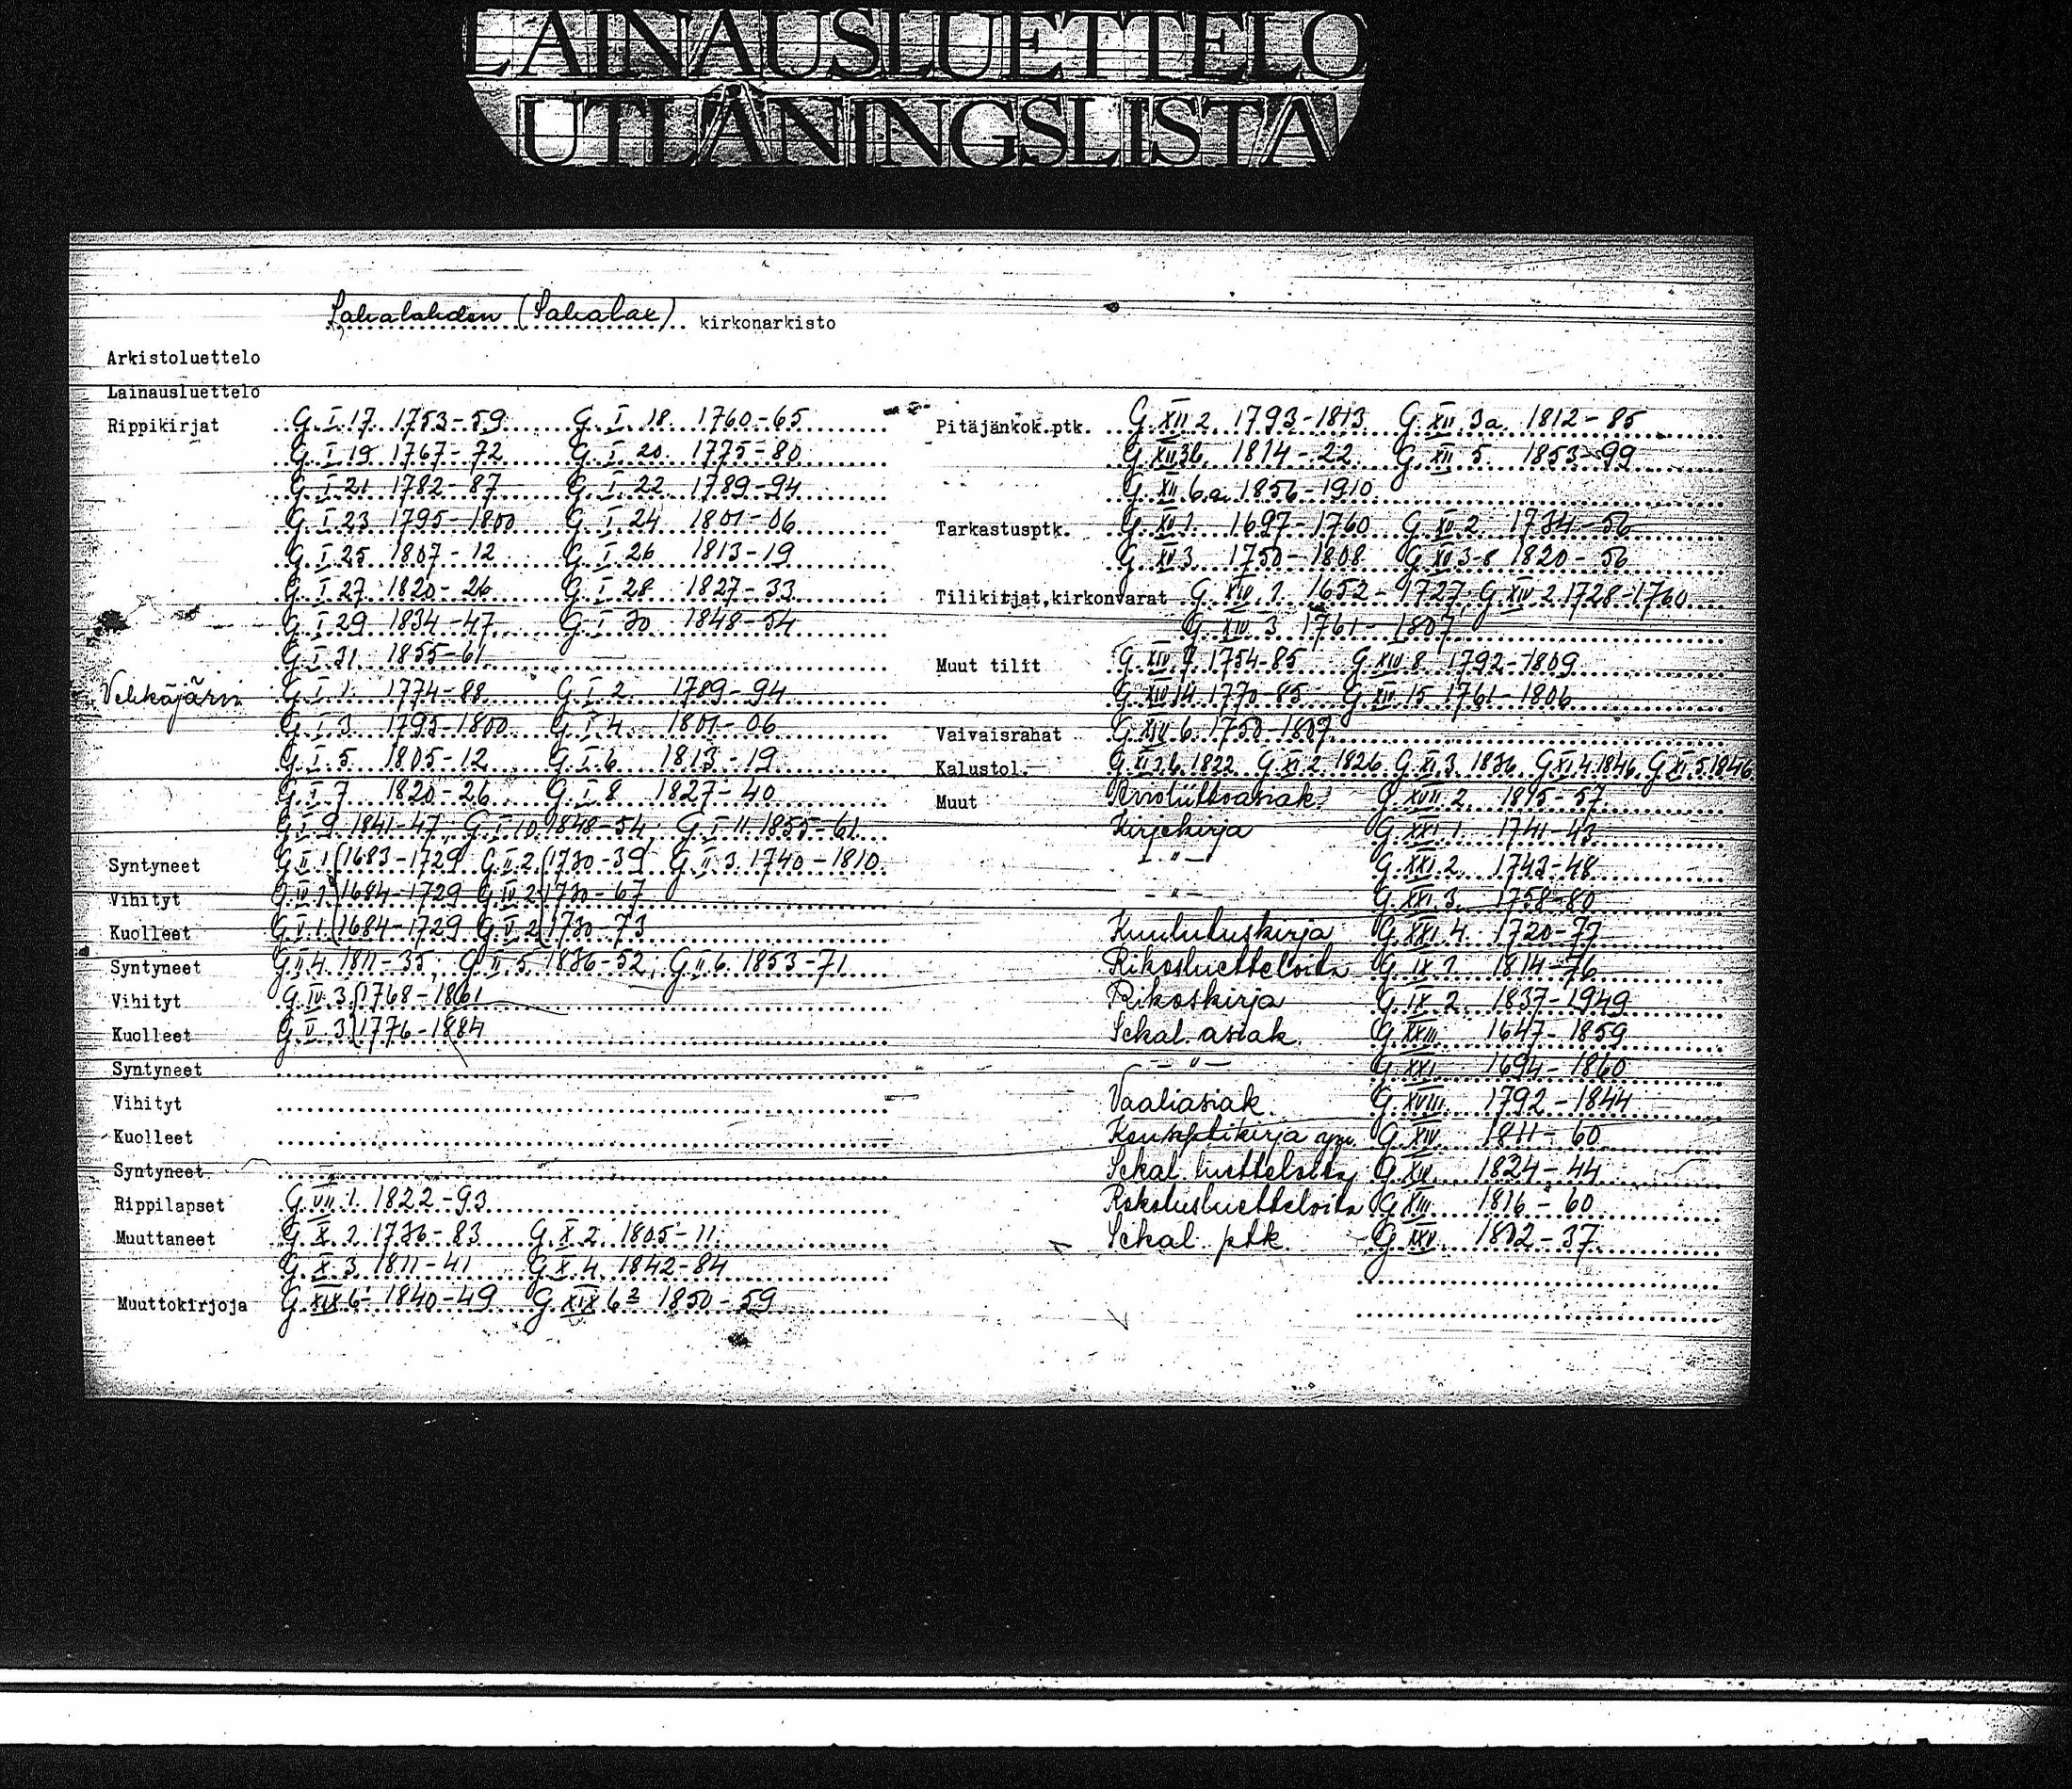 LAINAUSLUETTELO
UTLÅNINGSLISTA
Sahalahden (Sahalax) kirkonarkisto
Arkistoluettelo
Lainausluettelo
Rippikirjat G. I. 17. 1753-59 G. I. 18. 1760-65
G. I 19 1767-72 G. I. 20. 1775-80
G. I 21 1782-87 G. I. 22. 1789-94
G. I. 23 1795-1800 G. I. 24 1801-06
G. I. 25 1807-12 G. I. 26 1813-19
G. I. 27 1820-26 G. I. 28 1827-33
G. I. 29 1834-47 G. I 30 1848-54
G. I. 31. 1855-61
Vehkajärvi G. I. 1. 1774-88 G. I. 2. 1789-94
G. I. 3 1795-1800 G. I. 4. 1801-06
G. I. 5 1805-12 G. I. 6 1813-19
G. I. 7 1820-26 G. I. 8 1827-40
G. I. 9. 1841-47; G. I. 10. 1848-54; G. I. 11. 1855-61
Syntyneet G. II. 1. 1683-1729 G. II. 2. 1730-39 G. II. 3. 1740-1810
Vihityt G. IV. 1. 1684-1729 G. IV. 2. 1730-67
Kuolleet G. V. 1. 1684-1729 G. V. 2. 1730-73
Syntyneet G. II. 4. 1811-35; G. II. 5. 1836-52; G. II. 6. 1853-71
Vihityt G. IV. 3. 1768-1861
Kuolleet G. V. 3. 1776-1884
Syntyneet
Vihityt
Kuolleet
Syntyneet
Rippilapset G. VII. 1. 1822-93
Muuttaneet G. X. 1. 1736-83 G. X. 2. 1805-11
G. X. 3. 1811-41 G. X. 4. 1842-84
Muuttokirjoja G. XIX 6 1840-49 G. XIX 6 1850-59
Pitäjänkok.ptk. G. XII 2. 1793-1813 G. XII. 3a. 1812-85
G. XII 3b. 1814-22 G. XII. 5. 1853-99
G. XII. 6.a. 1856-1910
Tarkastusptk. 1697-1760 1734-56
1750-1808 1820-56
Tilikirjat,kirkonvarat G. XIV. 1. 1652-1727; G. XIV. 2. 1728-1760
G. XIV. 3 1761-1807
Muut tilit 1754-85 G. XIV 8. 1792-1809
G. XIV 14 1770-85 G. XIV. 15 1761-1806
Vaivaisrahat G. XIV. 6. 1750-1807
Kalustol. 1822 G. XI. 2. 1826 G. XI. 3. 1836 G. XI. 4. 1846 G. XI. 5. 1846
Muut G. XVII. 2.
Kirjekirja G. XXI 1. 1741-43
- " - G. XXI. 2. 1743-48
- " - G. XXI. 3. 1758-80
Kuulutuskirja G. XXI. 4. 1720-77
Rikosluetteloita G. IX. 1. 1814-76
Rikoskirja G. IX. 2. 1837-1949
Sekal. asiak. G. XXIII. 1647-1859
- " - G. XXI. 1694-1860
Vaaliasiak. G. XVIII. 1792-1844
Konseptikirja ym. G. XIV. 1811-60
Sekal. luetteloita 1824-44
Rokotusluetteloita G. XIII. 1816-60
Sekal. ptk. 1802-37